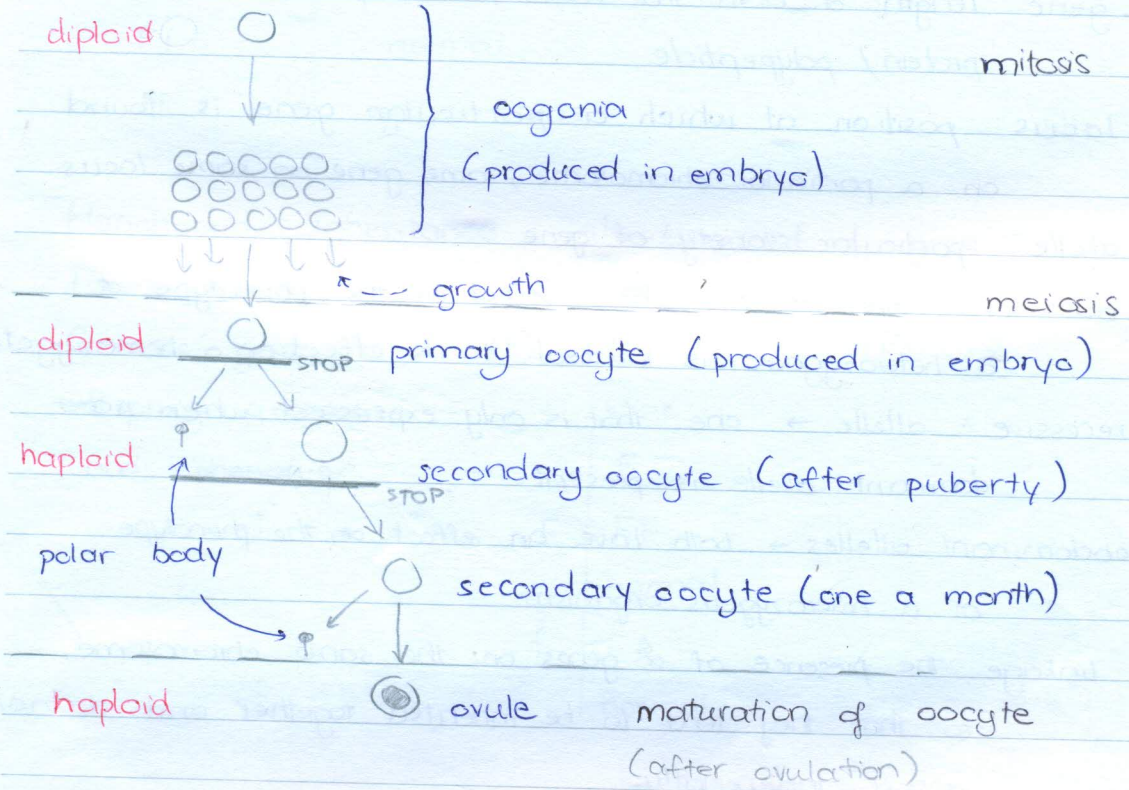 diploid
mitosis
oogonia
(produced in embryo)
growth
meiosis
diploid
STOP
primary oocyte (produced in embryo)
haploid
secondary oocyte (after puberty)
STOP
polar body
secondary oocyte (one a month)
haploid
ovule
maturation of oocyte
(after ovulation)